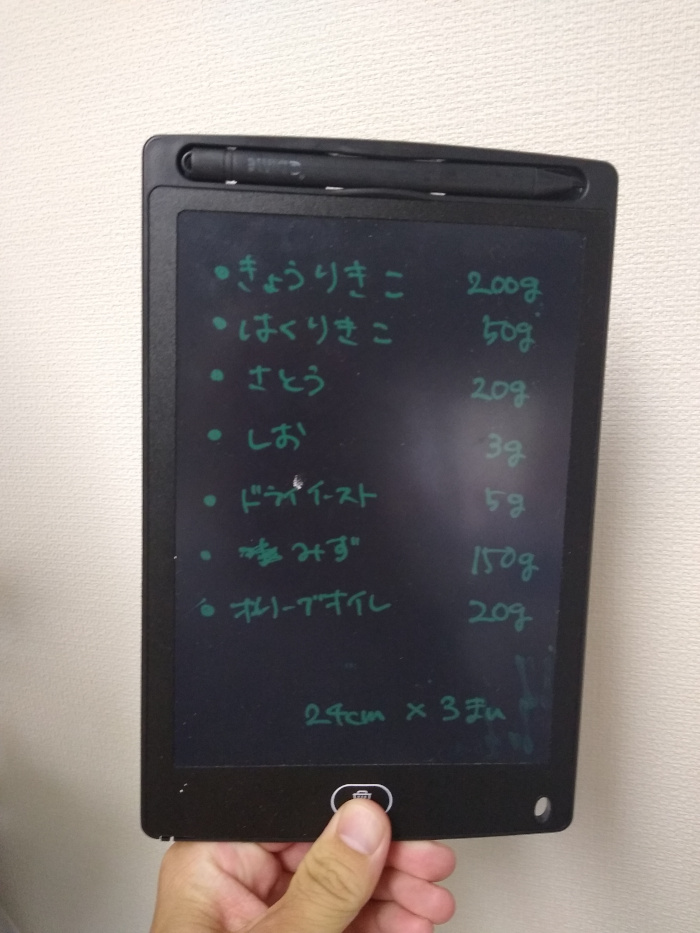 • きょうりきこ 200g
• はくりきこ 50g
• さとう 20g
• しお 3g
• ドライイースト 5g
• みず 150g
• オリーブオイル 20g
24cm × 3まい